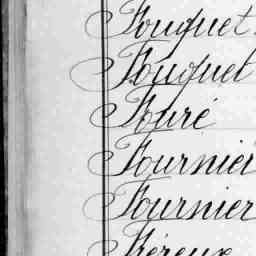 Fouquet
Fouquet
Fouré
Fournier
Fournier